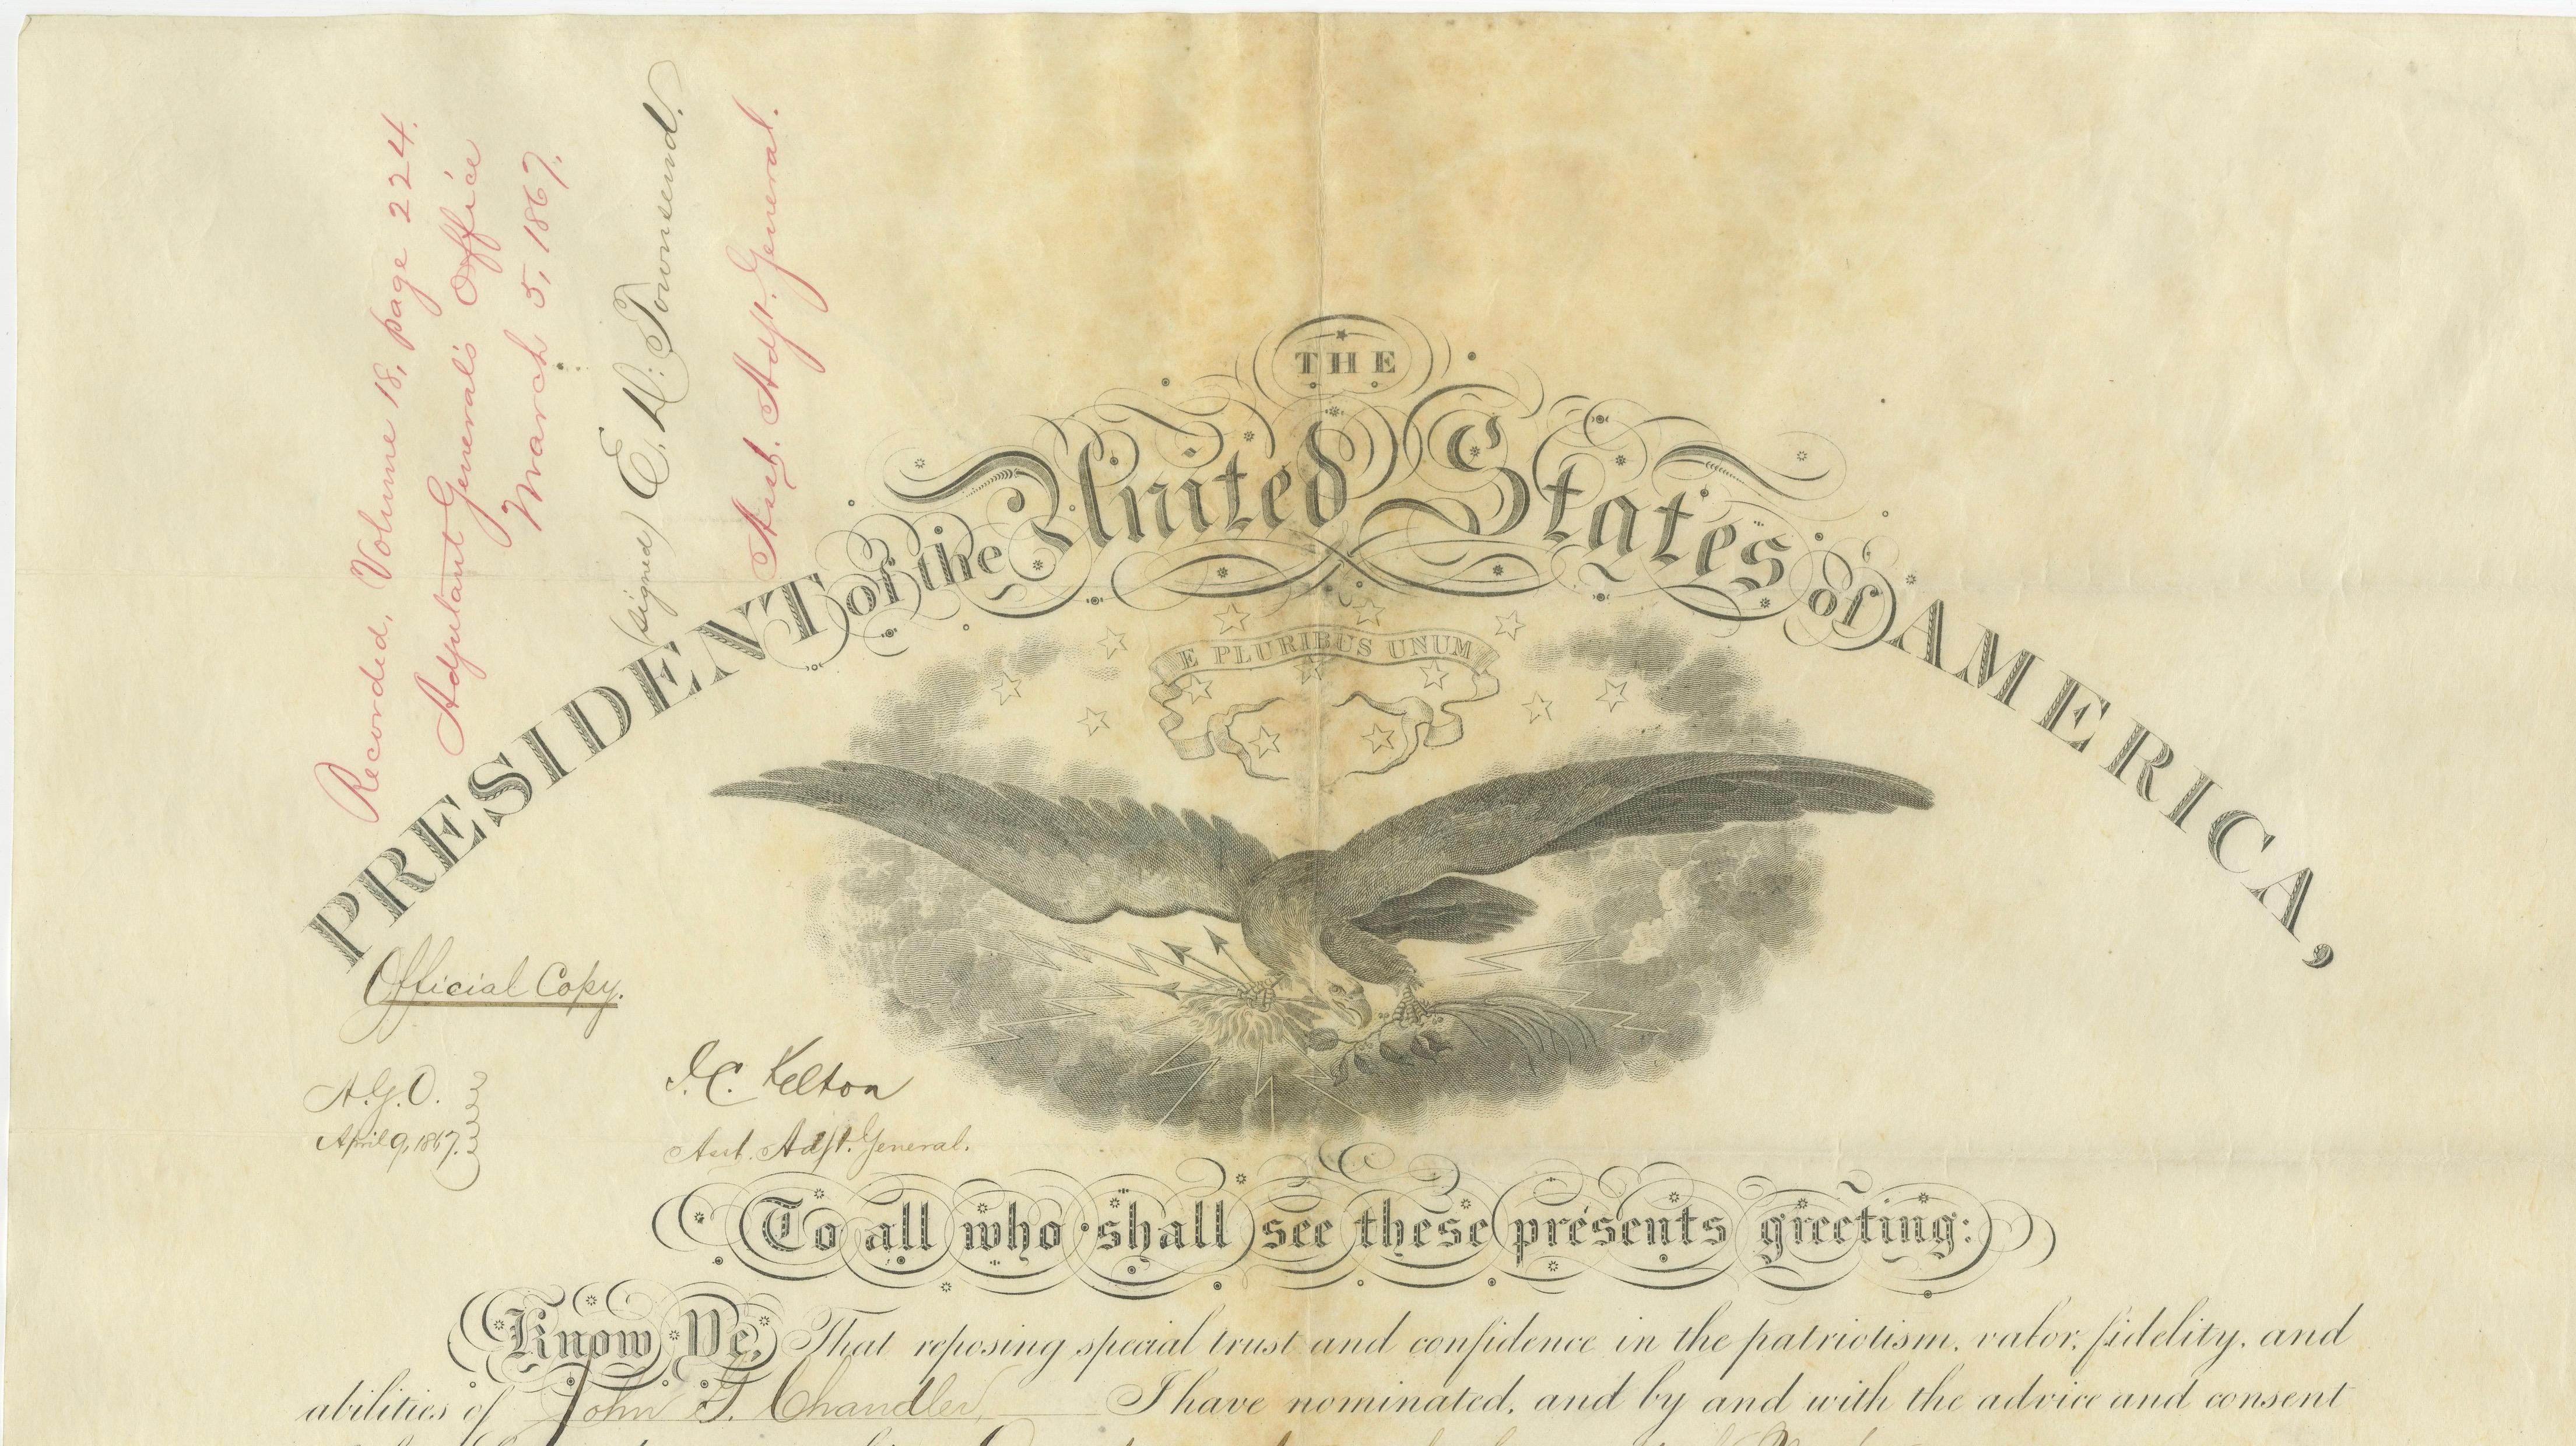 Recorded, Volume 18, page 224.
Adjutant General's Office
March 5, 1867.
(signed) E. D. Townsend.
Asst. Adjt. General.
THE
PRESIDENT of the United States of AMERICA,
E PLURIBUS UNUM
Official Copy.
A.G.O.
April 9, 1867.
J. C. Kelton
Asst. Adjt. General.
To all who shall see these presents greeting:
Know Ye, That reposing special trust and confidence in the patriotism, valor, fidelity, and
abilities of John G. Chandler, I have nominated, and by and with the advice and consent